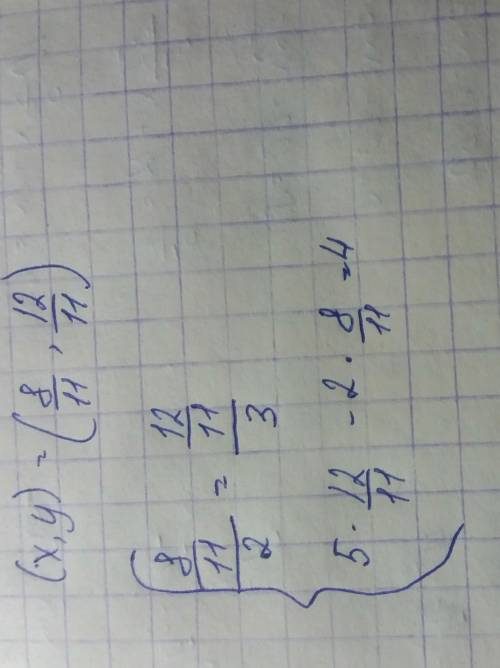 (x,y) = (8/11, 12/11)
{ (8/11)/2 = (12/11)/3
5 · 12/11 - 2 · 8/11 = 4